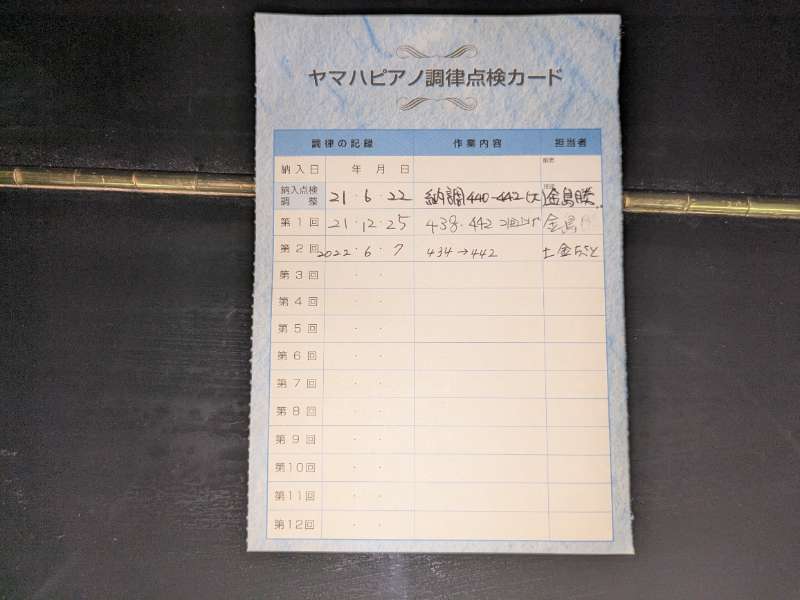 ヤマハピアノ調律点検カード
調律の記録 作業内容 担当者
納入日 年 月 日
納入点検調整 21・6・22 納調 440-442 金島勝
第1回 21・12・25 438・442 金島
第2回 2022・6・7 434→442
第3回 ・ ・
第4回 ・ ・
第5回 ・ ・
第6回 ・ ・
第7回 ・ ・
第8回 ・ ・
第9回 ・ ・
第10回 ・ ・
第11回 ・ ・
第12回 ・ ・